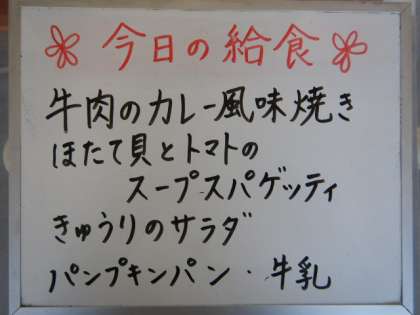 今日の給食
牛肉のカレー風味焼き
ほたて貝とトマトの
スープスパゲッティ
きゅうりのサラダ
パンプキンパン・牛乳